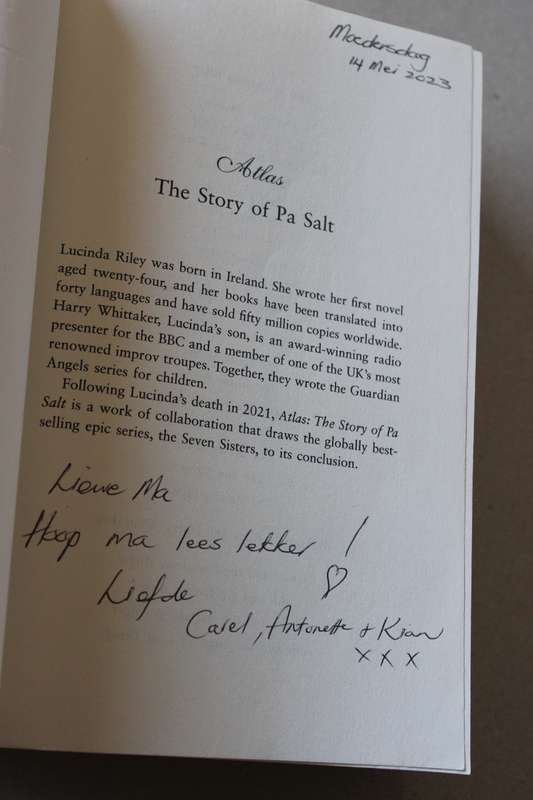 Moedersdag
14 Mei 2023
Atlas
The Story of Pa Salt
Lucinda Riley was born in Ireland. She wrote her first novel
aged twenty-four, and her books have been translated into
forty languages and have sold fifty million copies worldwide.
Harry Whittaker, Lucinda's son, is an award-winning radio
presenter for the BBC and a member of one of the UK's most
renowned improv troupes. Together, they wrote the Guardian
Angels series for children.
Following Lucinda's death in 2021, Atlas: The Story of Pa
Salt is a work of collaboration that draws the globally best-
selling epic series, the Seven Sisters, to its conclusion.
Liewe Ma
Hoop ma lees lekker!
Liefde
Carel, Antonette + Kian
x x x